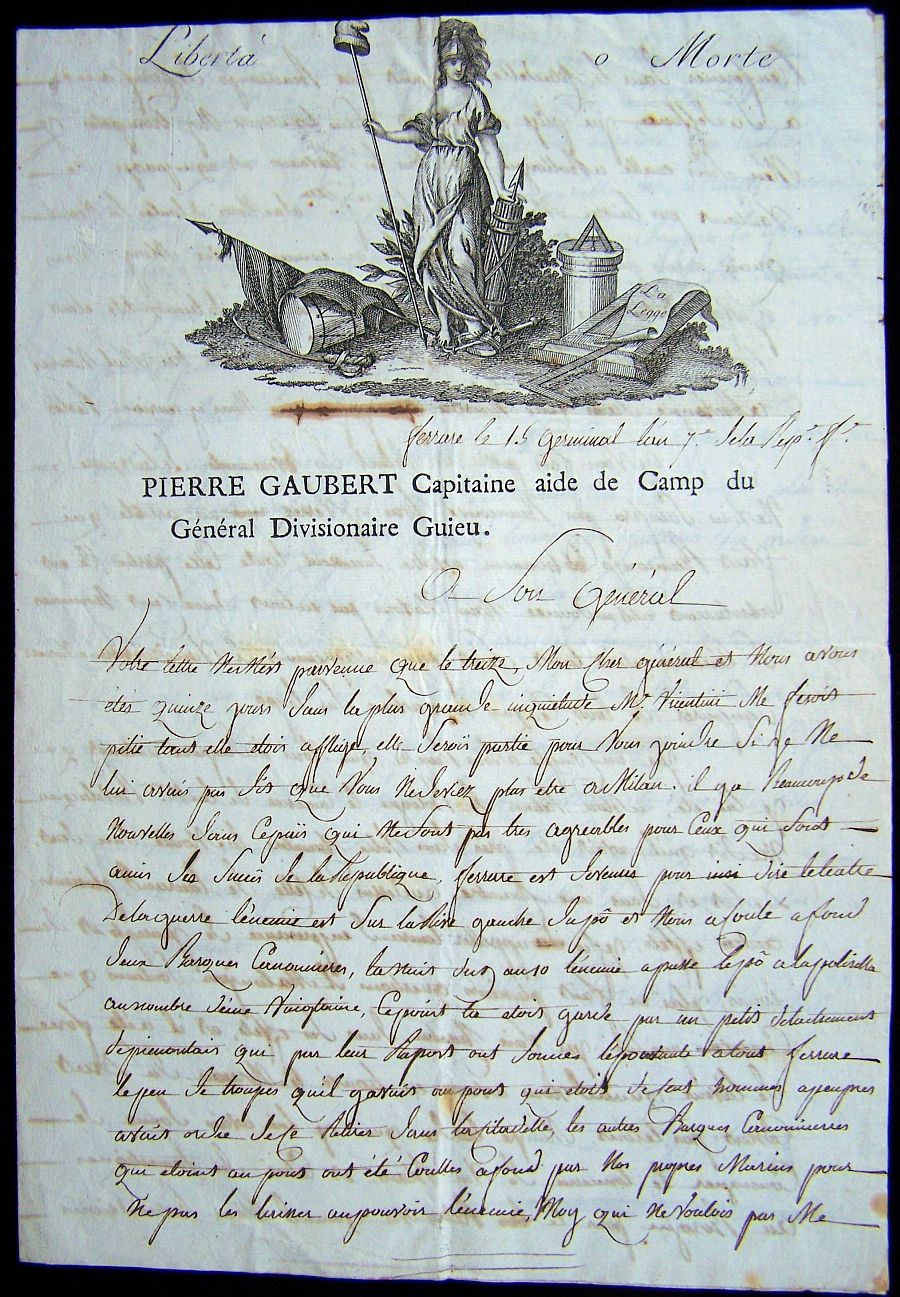 Libertà o Morte
La Legge
ferrare le 15 Germinal l'an 7.e de la Rép.e ff.e
PIERRE GAUBERT Capitaine aide de Camp du
Général Divisionaire Guieu.
A Son Général
Votre lettre parvenue que le treize, Mon Cher général et Nous avons
étés quinze jours dans la plus grande inquietude Me fesoit
pitié tant elle étois affligé, elle Serois partie pour Vous joindre Si je Ne
lui avais pas dit que Vous Ne deviez plus etre a Milan. il y a Beaucoup de
Nouvelles dans Ce païs qui Ne Sont pas tres agreables pour Ceux qui Sont
amis des Succès de la Republique, ferrare est devenue pour insi dire le teatre
De la guerre l'énemie est Sur la Rive gauche du pô et Nous a coulé a fond
deux Barques Canonnieres, la nuit du 9 au 10 l'énemie a passé le pô a la polisella
au nombre d'une Vingtaine, Ce point la étois gardé par un petit detachement
de piemontais qui par leur Raport ont données l'épouvante a tout ferrare
le peu de troupes qu'il y avait au pont qui étoit de Cent hommes apeuprés
avait ordre de Ce Retirer dans la Citadelle, les autres Barques Canonnierres
qui étoint au pont ont été Coullés a fond par Nos propres Marins pour
Ne pas les laisser au pouvoir l'énemie, Moy qui Ne Voulois pas Me